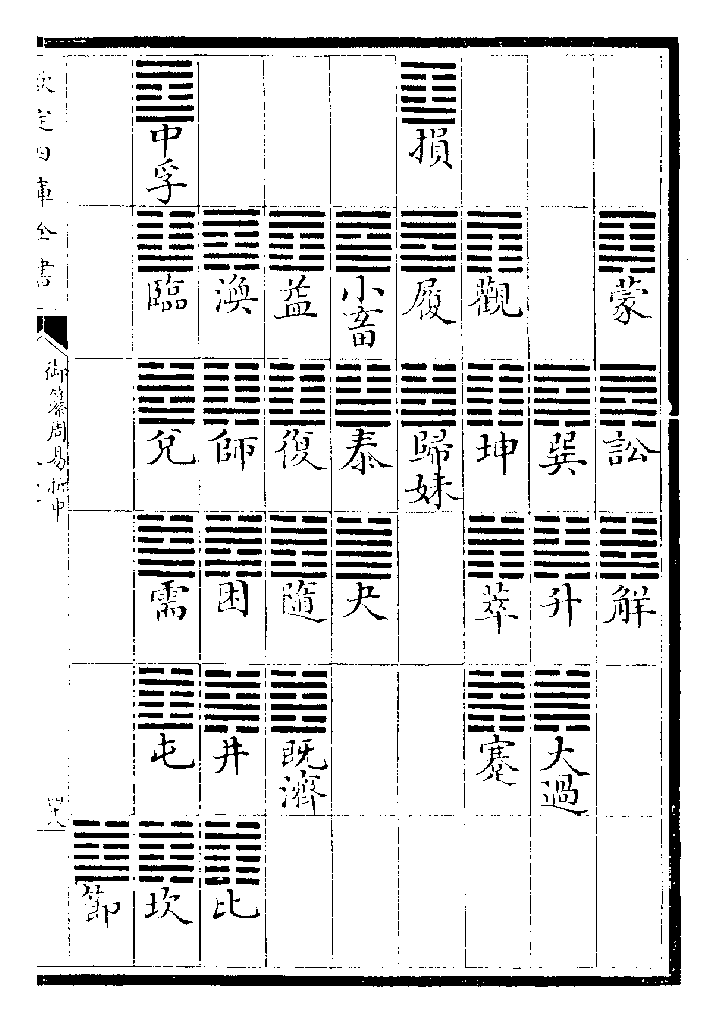 蒙
訟
解
巽
升
大過
觀
坤
萃
蹇
損
履
歸妹
小畜
泰
夬
益
復
隨
既濟
渙
師
困
井
比
中孚
臨
兌
需
屯
坎
節
欽定四庫全書
御纂周易折中